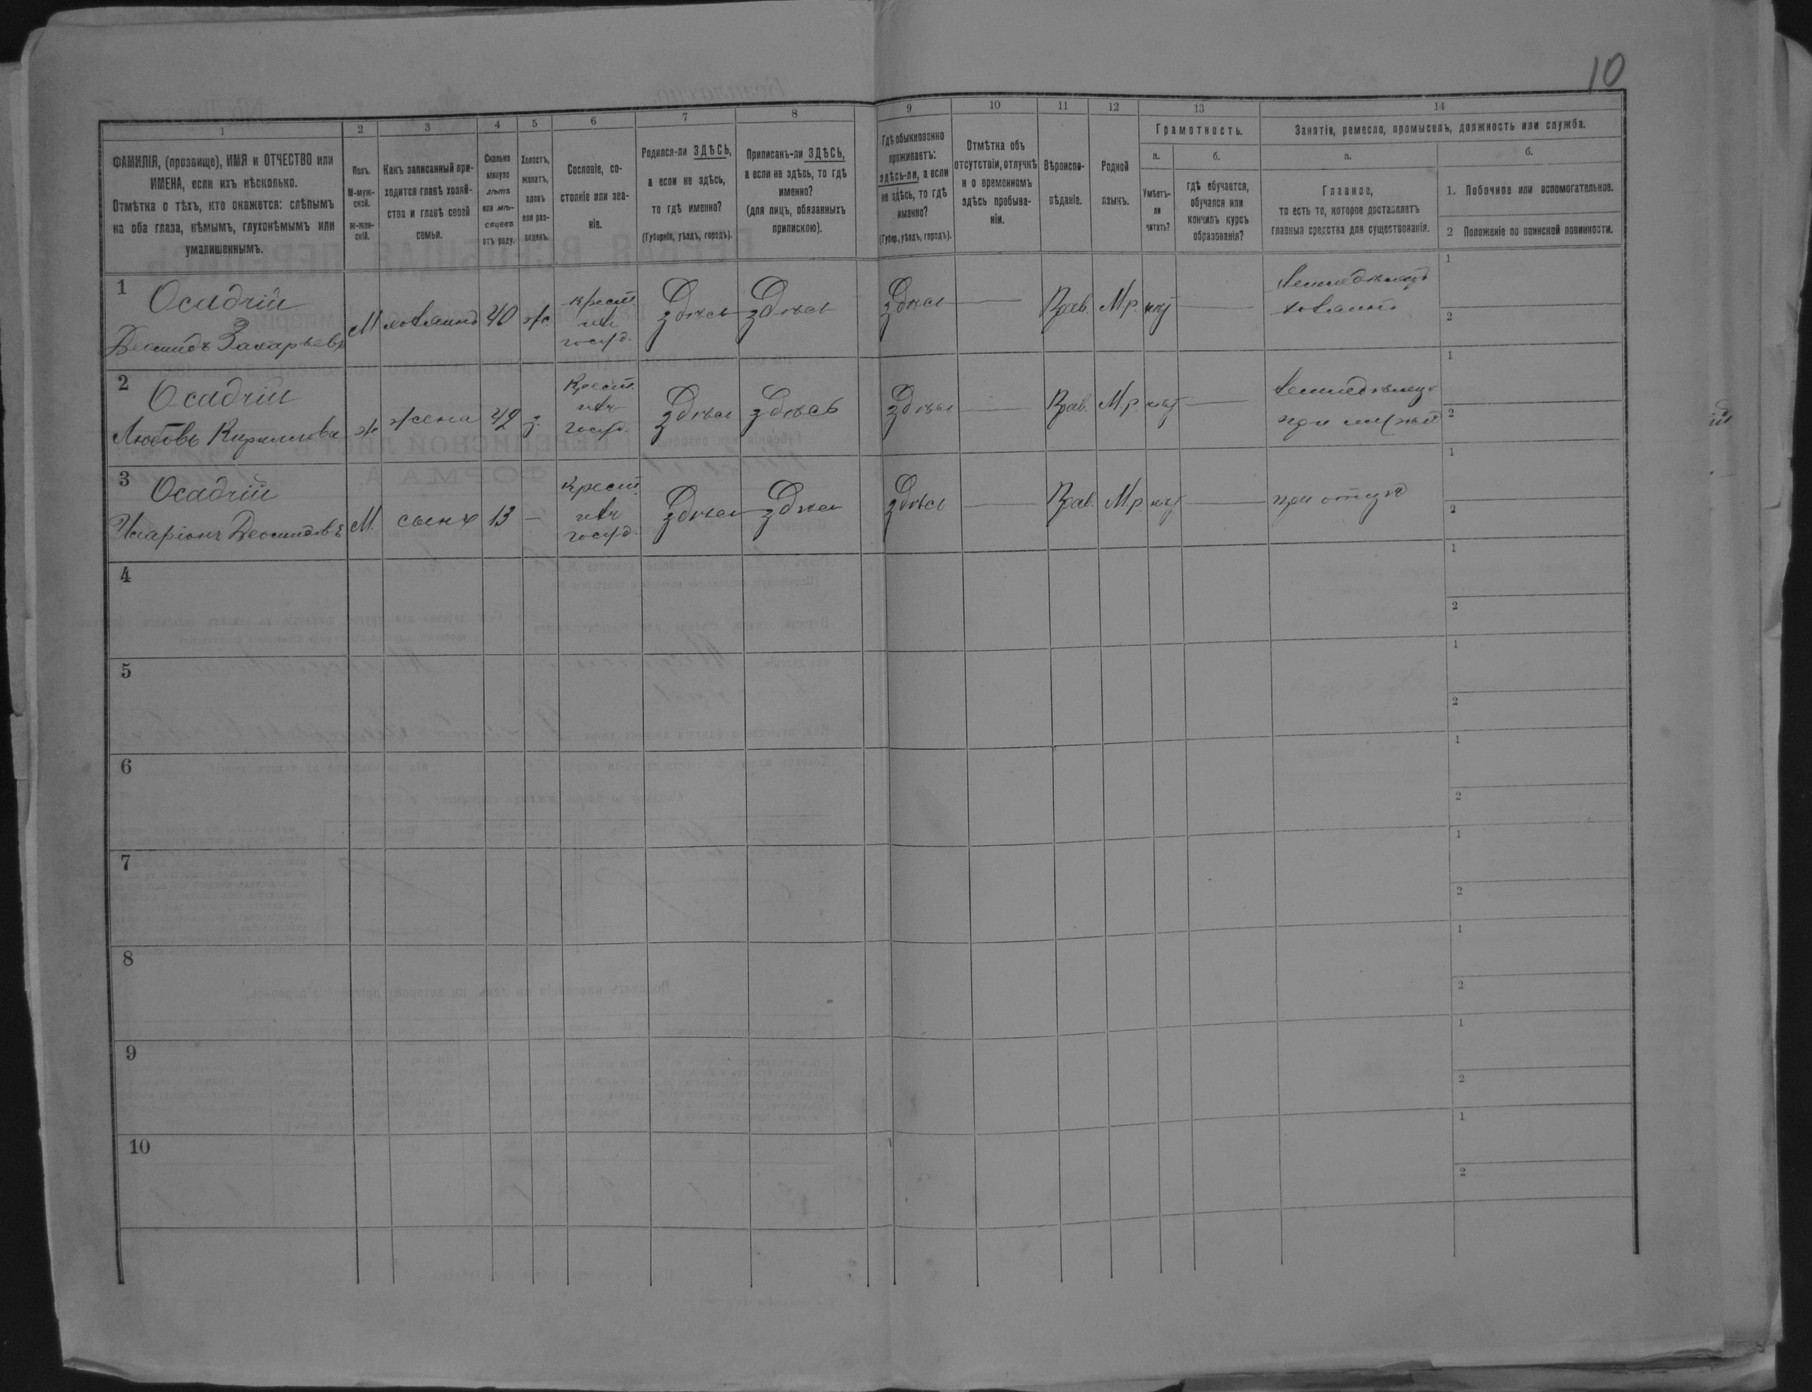 10
1 2 3 4 5 6 7 8 9 10 11 12 13 14
ФАМИЛІЯ, (прозвище), ИМЯ и ОТЧЕСТВО или
ИМЕНА, если ихъ нѣсколько.
Отмѣтка о тѣхъ, кто окажется: слѣпымъ
на оба глаза, нѣмымъ, глухонѣмымъ или
умалишеннымъ.
Полъ.
М-муж-
ской.
Ж-жен-
скій.
Какъ записанный при-
ходится главѣ хозяй-
ства и главѣ своей
семьи.
Сколько
минуло
лѣтъ
или мѣ-
сяцевъ
отъ роду.
Холостъ,
женатъ,
вдовъ
или раз-
веденъ.
Сословіе, со-
стояніе или зва-
ніе.
Родился-ли ЗДѢСЬ,
а если не здѣсь,
то гдѣ именно?
(Губернія, уѣздъ, городъ).
Приписанъ-ли ЗДѢСЬ,
а если не здѣсь, то гдѣ
именно?
(для лицъ, обязанныхъ
припискою).
Гдѣ обыкновенно
проживаетъ:
здѣсь-ли, а если
не здѣсь, то гдѣ
именно?
(Губер., уѣздъ, городъ).
Отмѣтка объ
отсутствіи, отлучкѣ
и о временномъ
здѣсь пребыва-
ніи.
Вѣроиспо-
вѣданіе.
Родной
языкъ.
Грамотность.
а.
Умѣетъ-
ли
читать?
б.
гдѣ обучается,
обучался или
кончилъ курсъ
образованія?
Занятіе, ремесло, промыселъ, должность или служба.
а.
Главное,
то есть то, которое доставляетъ
главныя средства для существованія.
б.
1. Побочное или вспомогательное.
2 Положеніе по воинской повинности.
1 Осадчій
Захарьевъ М хозяинъ 40 ж. крест.
изъ
госуд. Здѣсь Здѣсь Здѣсь — Прав. М.р. нѣт — Земледѣлецъ
хозяинъ
1
2
2 Осадчій
Любовь Кирилова ж жена 42 з. Крест.
изъ
госуд. Здѣсь здѣсь Здѣсь — Прав. М.р. нѣт — Земледѣлецъ
при мужѣ
1
2
3 Осадчій
М. сынъ 13 — крест.
изъ
госуд. Здѣсь Здѣсь Здѣсь — Прав. М.р. нѣт — при отцѣ
1
2
4
1
2
5
1
2
6
1
2
7
1
2
8
1
2
9
1
2
10
1
2